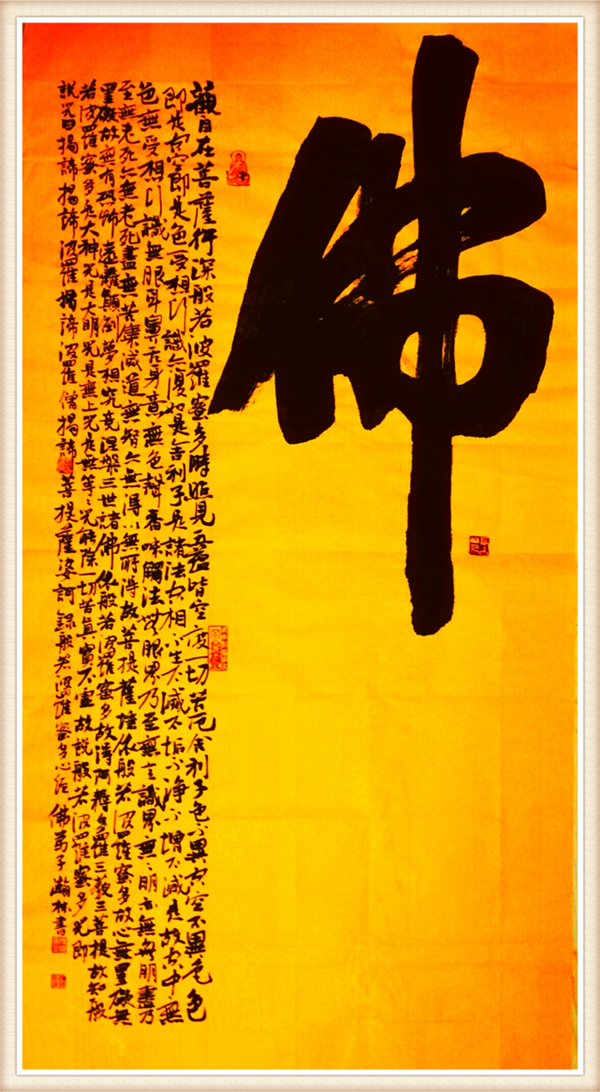 佛
觀自在菩薩行深般若波羅蜜多時照見五蘊皆空度一切苦厄舍利子色不異空空不異色色
即是空空即是色受相行識亦復如是舍利子是諸法空相不生不滅不垢不淨不增不減是故空中無
色無受相行識無眼耳鼻舌身意無色聲香味觸法無眼界乃至無意識界無無明亦無無明盡乃
至無老死亦無老死盡無苦集滅道無智亦無得以無所得故菩提薩埵依般若波羅蜜多故心無罣礙無
罣礙故無有恐怖遠離顛倒夢相究竟涅槃三世諸佛依般若波羅蜜多故得阿耨多羅三藐三菩提故知般
若波羅蜜多是大神咒是大明咒是無上咒是無等等咒能除一切苦真實不虛故說般若波羅蜜多咒即
說咒曰揭諦揭諦波羅揭諦波羅僧揭諦菩提薩婆訶錄般若波羅蜜多心經佛弟子瀚林書